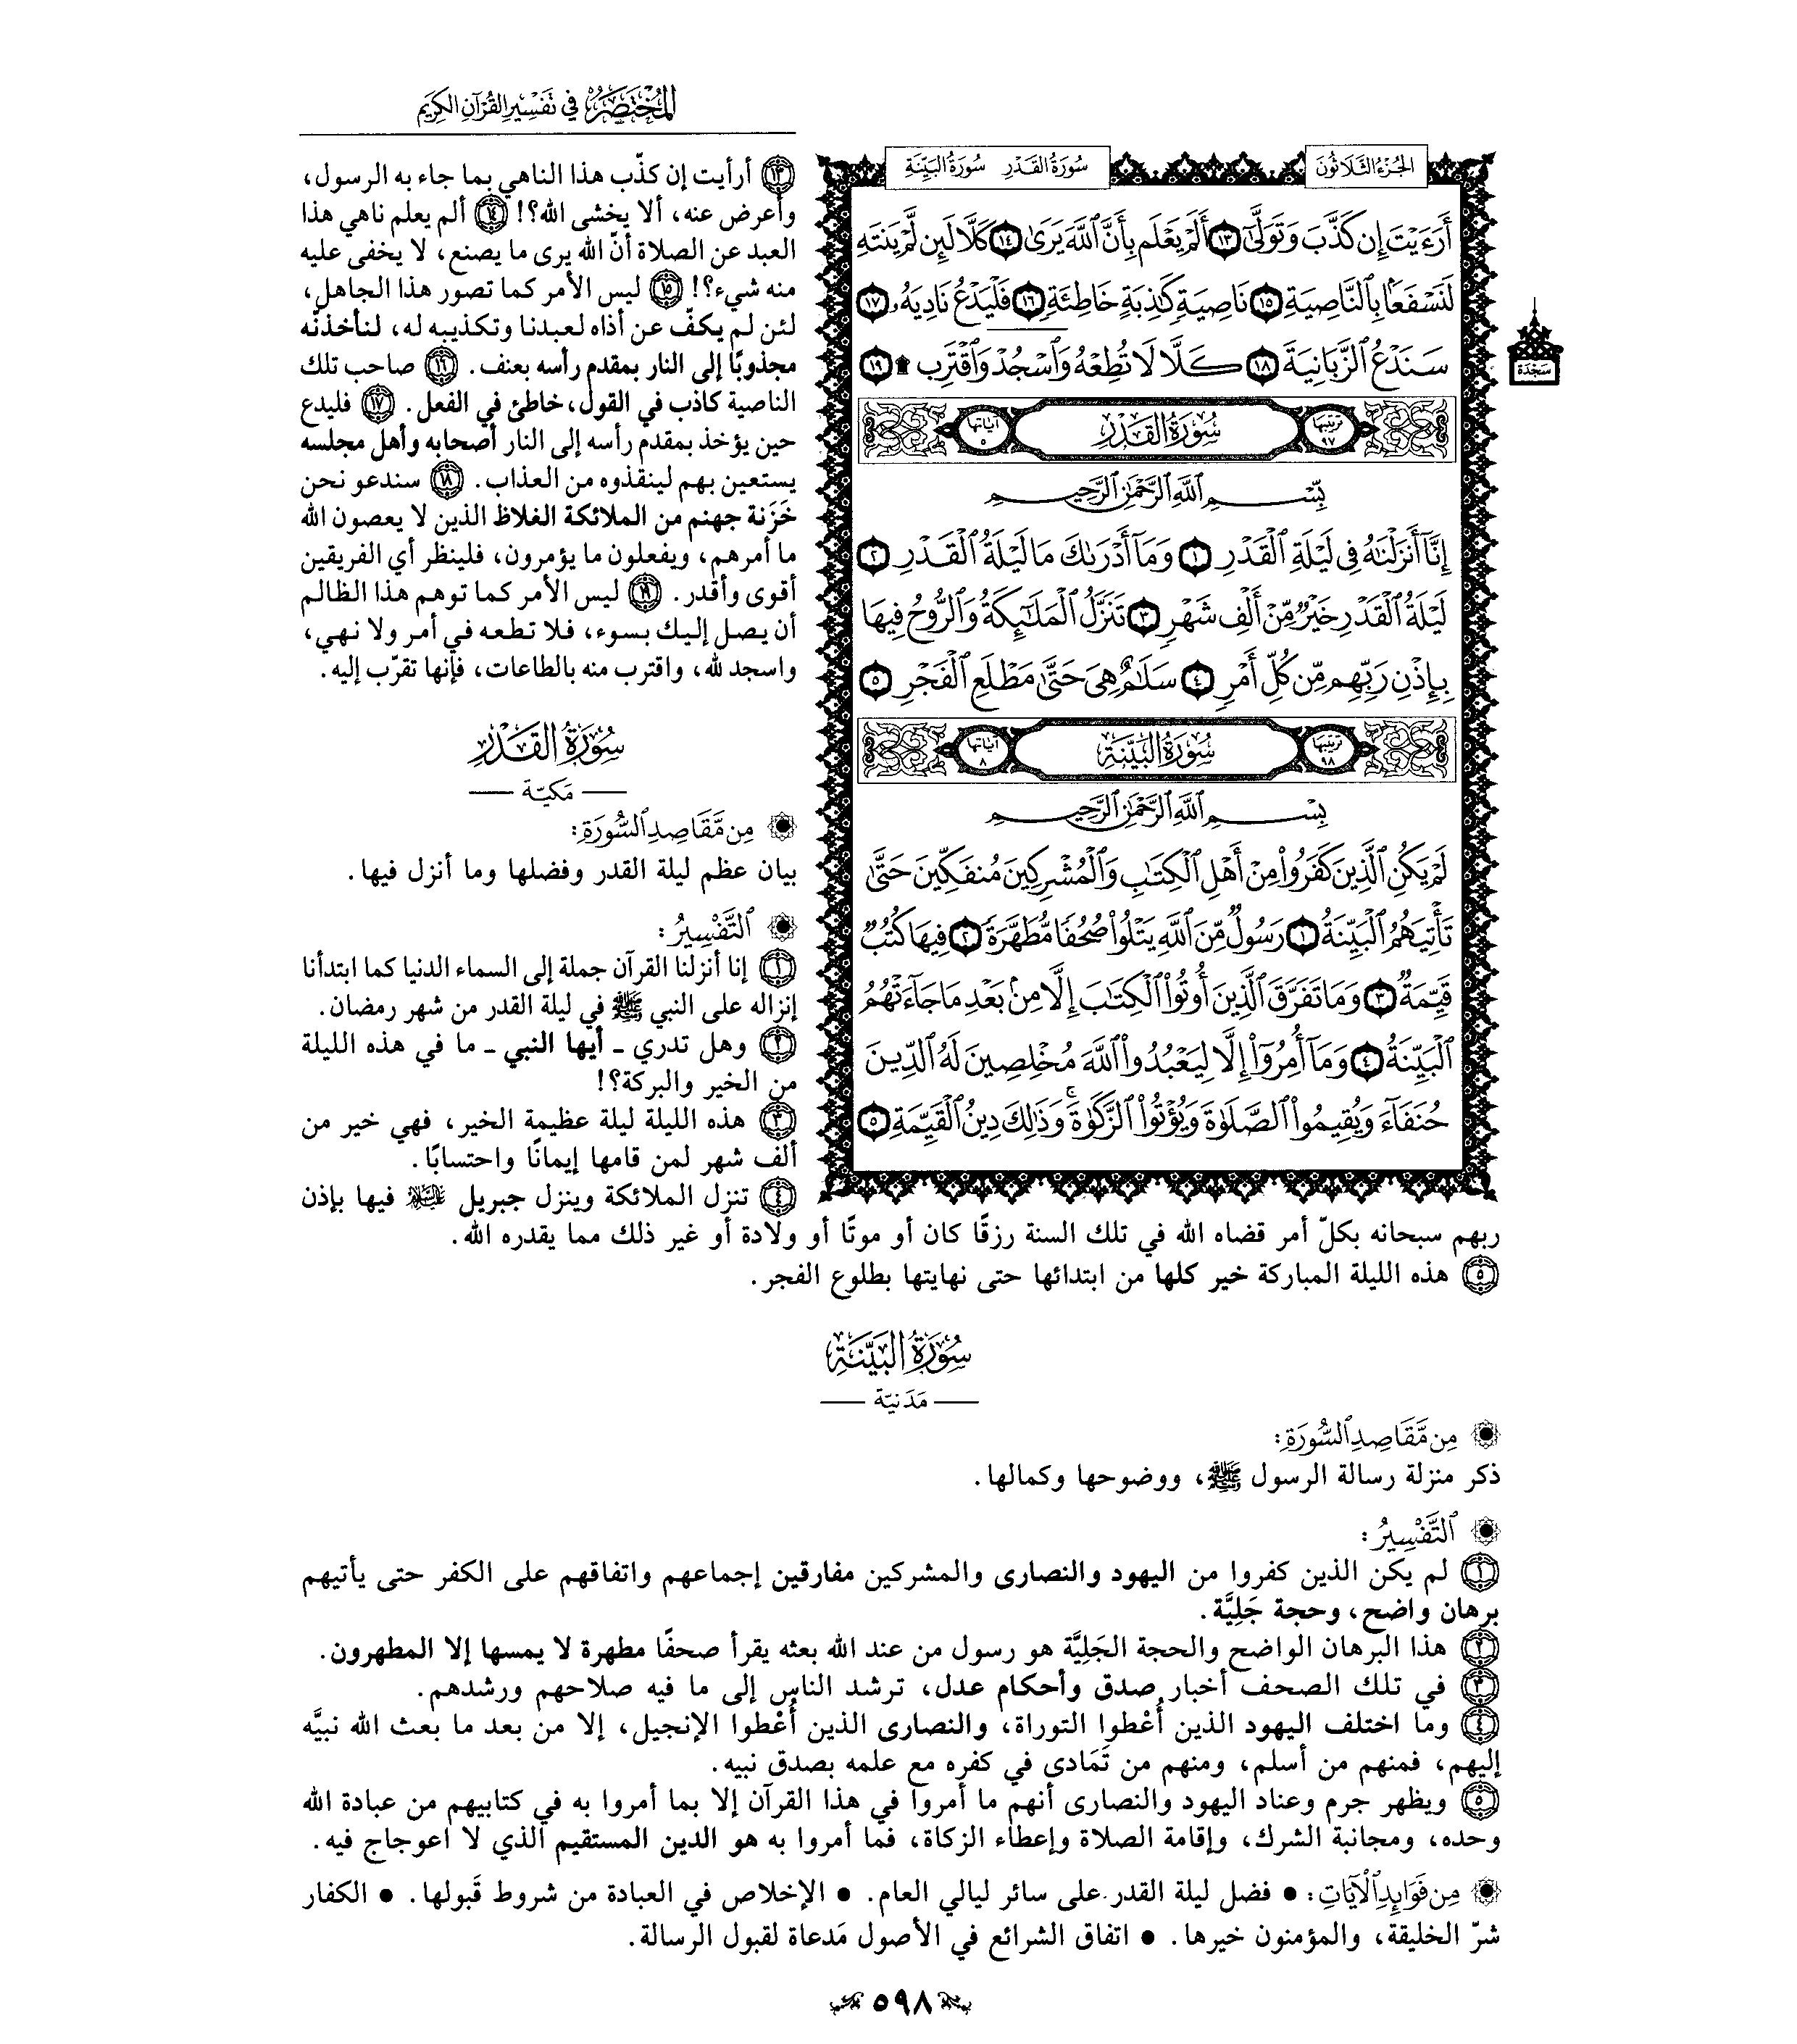 المُخْتَصَرُ في تَفْسِيرِ القُرْآنِ الكَرِيم
الجُزْءُ الثَّلَاثُونَ سُورَةُ القَدْرِ سُورَةُ البَيِّنَةِ
أَرَءَيْتَ إِن كَذَّبَ وَتَوَلَّىٰٓ ١٣ أَلَمْ يَعْلَم بِأَنَّ ٱللَّهَ يَرَىٰ ١٤ كَلَّا لَئِن لَّمْ يَنتَهِ
لَنَسْفَعًۢا بِٱلنَّاصِيَةِ ١٥ نَاصِيَةٍ كَٰذِبَةٍ خَاطِئَةٍ ١٦ فَلْيَدْعُ نَادِيَهُۥ ١٧
سَنَدْعُ ٱلزَّبَانِيَةَ ١٨ كَلَّا لَا تُطِعْهُ وَٱسْجُدْ وَٱقْتَرِب ۩ ١٩
سَجْدَة
ترتيبها ٩٧ سُورَةُ القَدْرِ آياتها ٥
بِسْمِ ٱللَّهِ ٱلرَّحْمَٰنِ ٱلرَّحِيمِ
إِنَّآ أَنزَلْنَٰهُ فِى لَيْلَةِ ٱلْقَدْرِ ١ وَمَآ أَدْرَىٰكَ مَا لَيْلَةُ ٱلْقَدْرِ ٢
لَيْلَةُ ٱلْقَدْرِ خَيْرٌ مِّنْ أَلْفِ شَهْرٍ ٣ تَنَزَّلُ ٱلْمَلَٰٓئِكَةُ وَٱلرُّوحُ فِيهَا
بِإِذْنِ رَبِّهِم مِّن كُلِّ أَمْرٍ ٤ سَلَٰمٌ هِىَ حَتَّىٰ مَطْلَعِ ٱلْفَجْرِ ٥
ترتيبها ٩٨ سُورَةُ البَيِّنَةِ آياتها ٨
بِسْمِ ٱللَّهِ ٱلرَّحْمَٰنِ ٱلرَّحِيمِ
لَمْ يَكُنِ ٱلَّذِينَ كَفَرُوا۟ مِنْ أَهْلِ ٱلْكِتَٰبِ وَٱلْمُشْرِكِينَ مُنفَكِّينَ حَتَّىٰ
تَأْتِيَهُمُ ٱلْبَيِّنَةُ ١ رَسُولٌ مِّنَ ٱللَّهِ يَتْلُوا۟ صُحُفًا مُّطَهَّرَةً ٢ فِيهَا كُتُبٌ
قَيِّمَةٌ ٣ وَمَا تَفَرَّقَ ٱلَّذِينَ أُوتُوا۟ ٱلْكِتَٰبَ إِلَّا مِنۢ بَعْدِ مَا جَآءَتْهُمُ
ٱلْبَيِّنَةُ ٤ وَمَآ أُمِرُوٓا۟ إِلَّا لِيَعْبُدُوا۟ ٱللَّهَ مُخْلِصِينَ لَهُ ٱلدِّينَ
حُنَفَآءَ وَيُقِيمُوا۟ ٱلصَّلَوٰةَ وَيُؤْتُوا۟ ٱلزَّكَوٰةَ ۚ وَذَٰلِكَ دِينُ ٱلْقَيِّمَةِ ٥
١٣ أرأيت إن كذّب هذا الناهي بما جاء به الرسول،
وأعرض عنه، ألا يخشى الله؟! ١٤ ألم يعلم ناهي هذا
العبد عن الصلاة أنّ الله يرى ما يصنع، لا يخفى عليه
منه شيء؟! ١٥ ليس الأمر كما تصور هذا الجاهل،
لئن لم يكفّ عن أذاه لعبدنا وتكذيبه له، لنأخذنّه
مجذوبًا إلى النار بمقدم رأسه بعنف. ١٦ صاحب تلك
الناصية كاذب في القول، خاطئ في الفعل. ١٧ فليدع
حين يؤخذ بمقدم رأسه إلى النار أصحابه وأهل مجلسه
يستعين بهم لينقذوه من العذاب. ١٨ سندعو نحن
خَزَنة جهنم من الملائكة الغلاظ الذين لا يعصون الله
ما أمرهم، ويفعلون ما يؤمرون، فلينظر أي الفريقين
أقوى وأقدر. ١٩ ليس الأمر كما توهم هذا الظالم
أن يصل إليك بسوء، فلا تطعه في أمر ولا نهي،
واسجد لله، واقترب منه بالطاعات، فإنها تقرّب إليه.
سُورَةُ القَدْرِ
مَكيّة
مِن مَّقَاصِدِ ٱلسُّورَةِ:
بيان عظم ليلة القدر وفضلها وما أنزل فيها.
ٱلتَّفْسِيرُ:
١ إنا أنزلنا القرآن جملة إلى السماء الدنيا كما ابتدأنا
إنزاله على النبي ﷺ في ليلة القدر من شهر رمضان.
٢ وهل تدري ـ أيها النبي ـ ما في هذه الليلة
من الخير والبركة؟!
٣ هذه الليلة ليلة عظيمة الخير، فهي خير من
ألف شهر لمن قامها إيمانًا واحتسابًا.
٤ تنزل الملائكة وينزل جبريل عليه السلام فيها بإذن
ربهم سبحانه بكلّ أمر قضاه الله في تلك السنة رزقًا كان أو موتًا أو ولادة أو غير ذلك مما يقدره الله.
٥ هذه الليلة المباركة خير كلها من ابتدائها حتى نهايتها بطلوع الفجر.
سُورَةُ البَيِّنَةِ
مَدَنيّة
مِن مَّقَاصِدِ ٱلسُّورَةِ:
ذكر منزلة رسالة الرسول ﷺ، ووضوحها وكمالها.
ٱلتَّفْسِيرُ:
١ لم يكن الذين كفروا من اليهود والنصارى والمشركين مفارقين إجماعهم واتفاقهم على الكفر حتى يأتيهم
برهان واضح، وحجة جَلِيَّة.
٢ هذا البرهان الواضح والحجة الجَلِيَّة هو رسول من عند الله بعثه يقرأ صحفًا مطهرة لا يمسها إلا المطهرون.
٣ في تلك الصحف أخبار صدق وأحكام عدل، ترشد الناس إلى ما فيه صلاحهم ورشدهم.
٤ وما اختلف اليهود الذين أُعْطوا التوراة، والنصارى الذين أُعْطوا الإنجيل، إلا من بعد ما بعث الله نبيَّه
إليهم، فمنهم من أسلم، ومنهم من تَمَادى في كفره مع علمه بصدق نبيه.
٥ ويظهر جرم وعناد اليهود والنصارى أنهم ما أمروا في هذا القرآن إلا بما أمروا به في كتابيهم من عبادة الله
وحده، ومجانبة الشرك، وإقامة الصلاة وإعطاء الزكاة، فما أمروا به هو الدين المستقيم الذي لا اعوجاج فيه.
مِن فَوَائِدِ ٱلْآيَاتِ: ● فضل ليلة القدر على سائر ليالي العام. ● الإخلاص في العبادة من شروط قَبولها. ● الكفار
شرّ الخليقة، والمؤمنون خيرها. ● اتفاق الشرائع في الأصول مَدعاة لقبول الرسالة.
٥٩٨